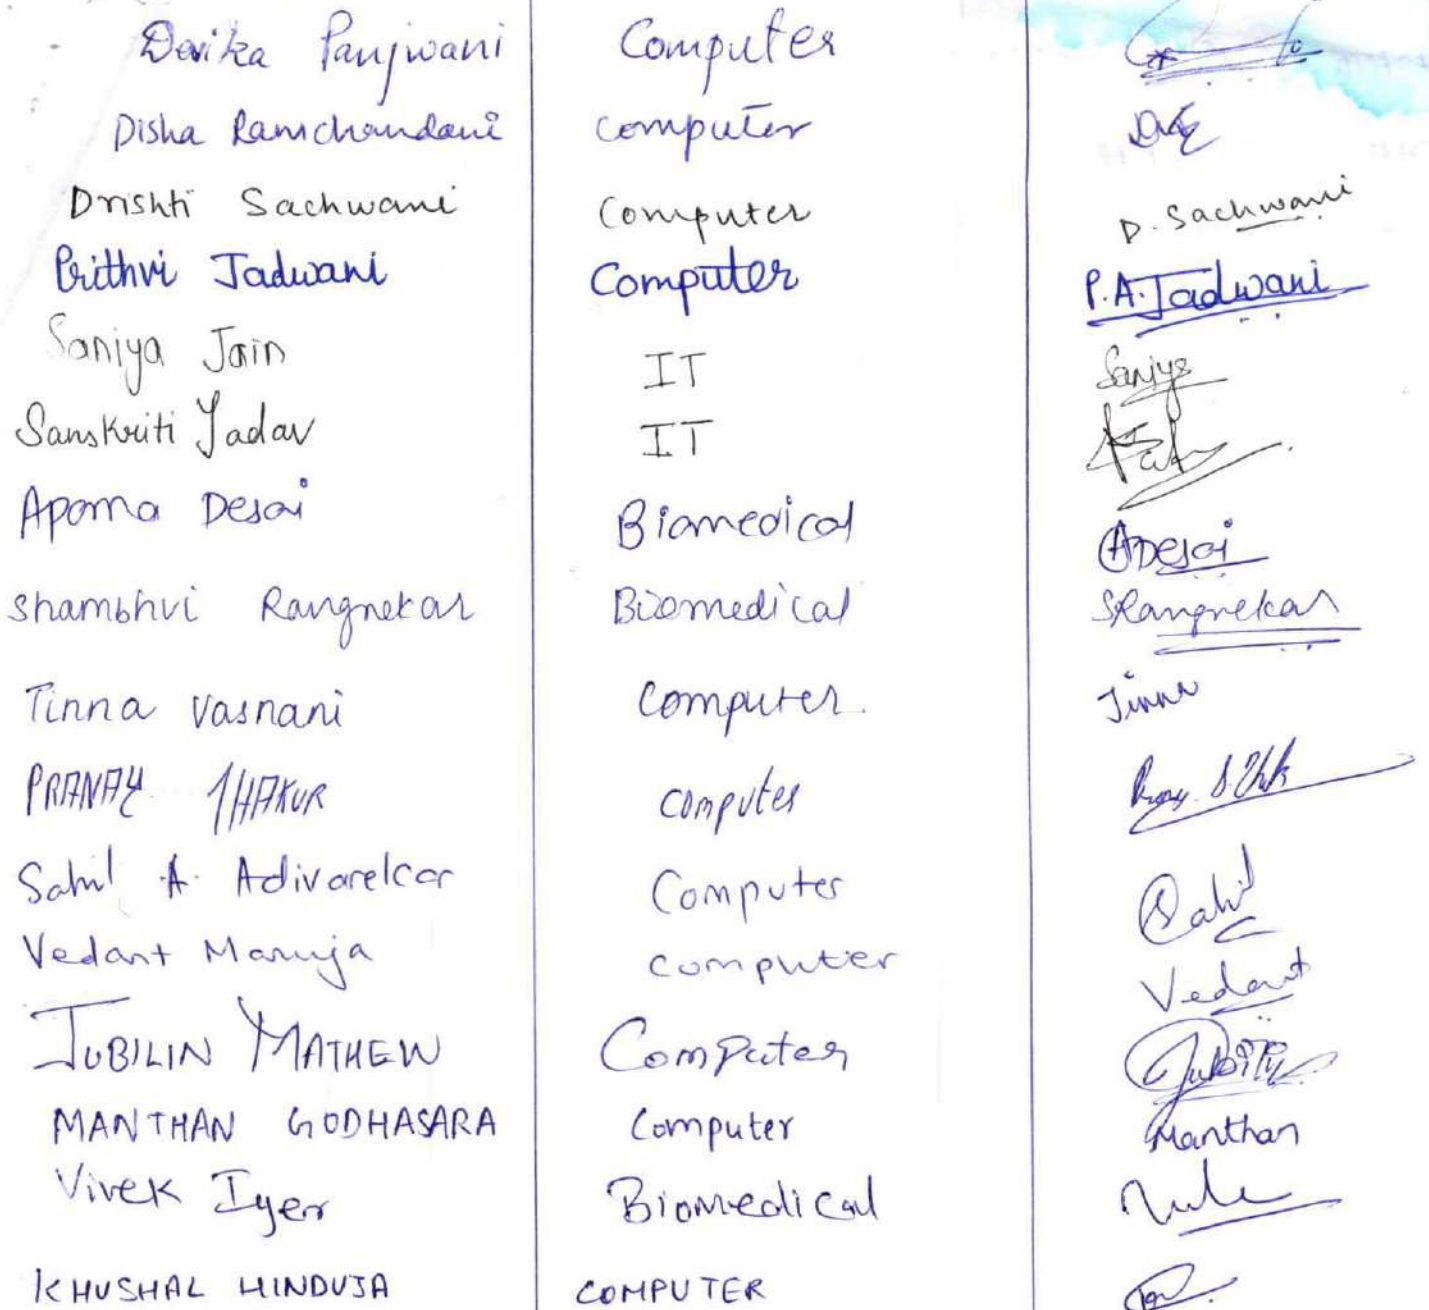 Devika Panjwani Computer
Disha Ramchandani Computer
Drishti Sachwani Computer D. Sachwani
Prithvi Jadwani Computer P.A. Jadwani
Saniya Jain IT Saniya
Sanskriti Yadav IT
Aporna Desai Biomedical ADesai
Shambhvi Rangnekar Biomedical SRangnekar
Tinna Vasnani Computer. Tinna
PRANAY THAKUR Computer
Sahil A. Adivarekar Computer Sahil
Vedant Manuja Computer Vedant
JUBILIN MATHEW Computer Jubilin
MANTHAN GODHASARA Computer Manthan
Vivek Iyer Biomedical
KHUSHAL HINDUJA COMPUTER